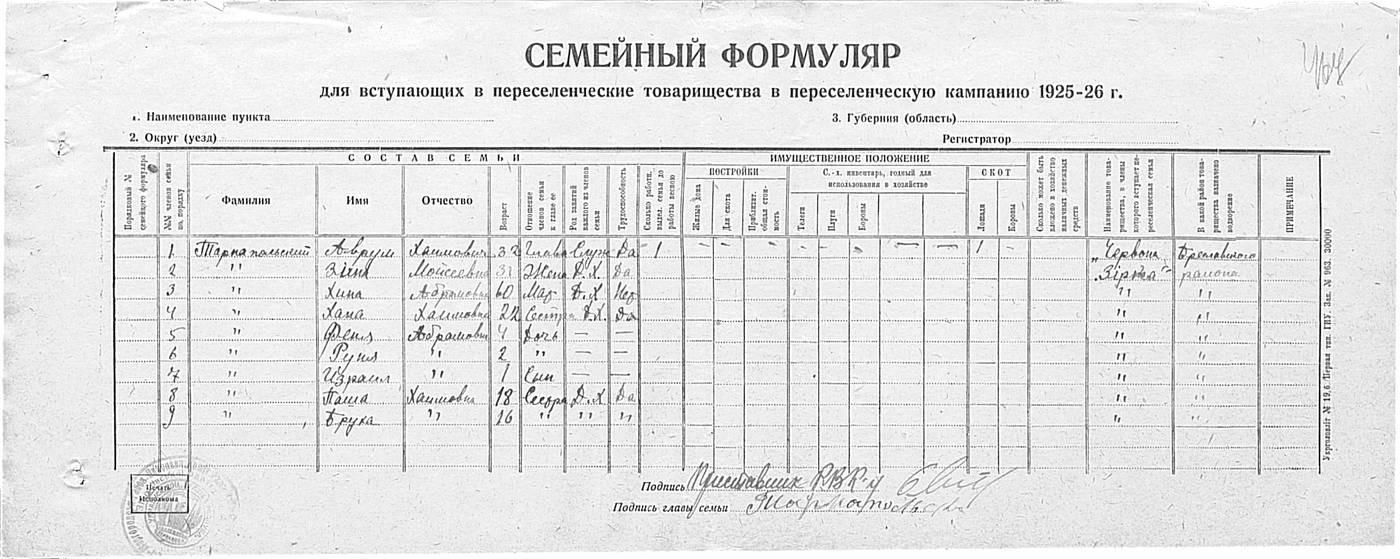 СЕМЕЙНЫЙ ФОРМУЛЯР
для вступающих в переселенческие товарищества в переселенческую кампанию 1925-26 г.
1. Наименование пункта
3. Губерния (область)
2. Округ (уезд)
Регистратор
СОСТАВ СЕМЬИ
ИМУЩЕСТВЕННОЕ ПОЛОЖЕНИЕ
ПОСТРОЙКИ
С.-х. инвентарь, годный для использования в хозяйстве
СКОТ
Порядковый № семейного формуляра
№№ членов семьи по порядку
Фамилия
Имя
Отчество
Возраст
Отношение членов семьи к главе ее
Род занятий каждого из членов семьи
Трудоспособность
Сколько работн. вышел. семья до работы весною
Жилые дома
Для скота
Приблизит. общая стоимость
Телеги
Плуги
Бороны
Лошади
Коровы
Сколько может быть вложено в хозяйство наличных денежных средств
Наименование товарищества, в члены которого вступает переселенческая семья
В какой район товарищества назначено водворение
ПРИМЕЧАНИЕ
1 Тарнапольский Аврум Хаимович 32 Глава Служ Да 1 – – – – – – – – 1 – „Червона Бреславского
2 " Зина Моисеевна 31 Жена Д.Х. Да Зірка" района
3 " Хина Абрамовна 60 Мат Д.Х Нет " "
4 " Хана Хаимовна 22 Сестра Д.Х. Да " "
5 " Феня Абрамовна 4 Дочь — — " "
6 " Руня " 2 " — — " "
7 " Израил " 1 Сын — — " "
8 " Паша Хаимовна 18 Сестра Д.Х Да " "
9 " Брука " 16 " " " " "
Печать Исполкома
Подпись
Подпись главы семьи Тарнапольский
Укрполіґ № 19,6 Первая тип. ГИУ. Зак. № 963. 30000